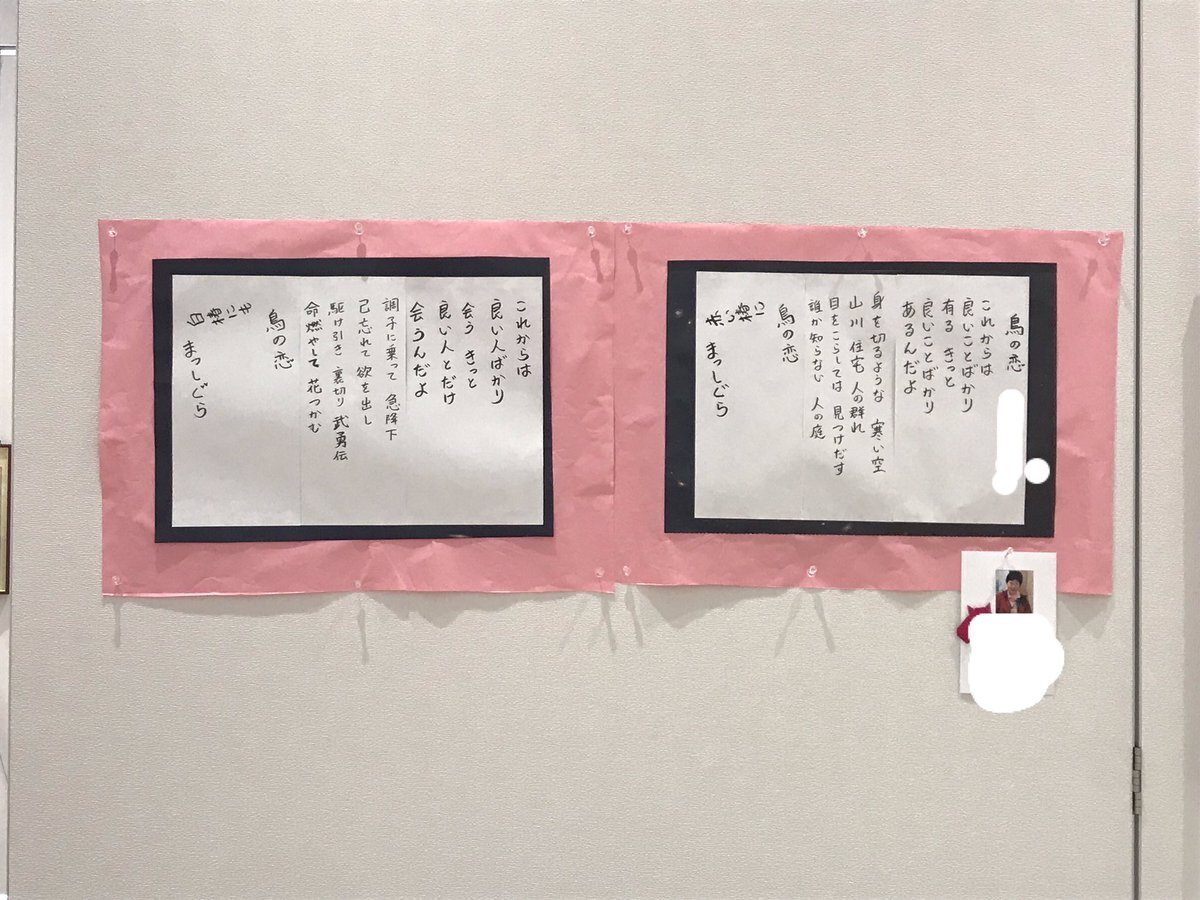 鳥の恋
これからは
良いことばかり
有る きっと
良いことばかり
あるんだよ
身を切るような 寒い空
山川住宅 人の群れ
目をこらしては 見つけだす
誰か知らない 人の庭
鳥の恋
赤い椿に
まっしぐら
これからは
良い人ばかり
会う きっと
良い人とだけ
会うんだよ
調子に乗って 急降下
己忘れて 欲を出し
駆け引き 裏切り 武勇伝
命燃やして 花つかむ
鳥の恋
白椿にも
まっしぐら